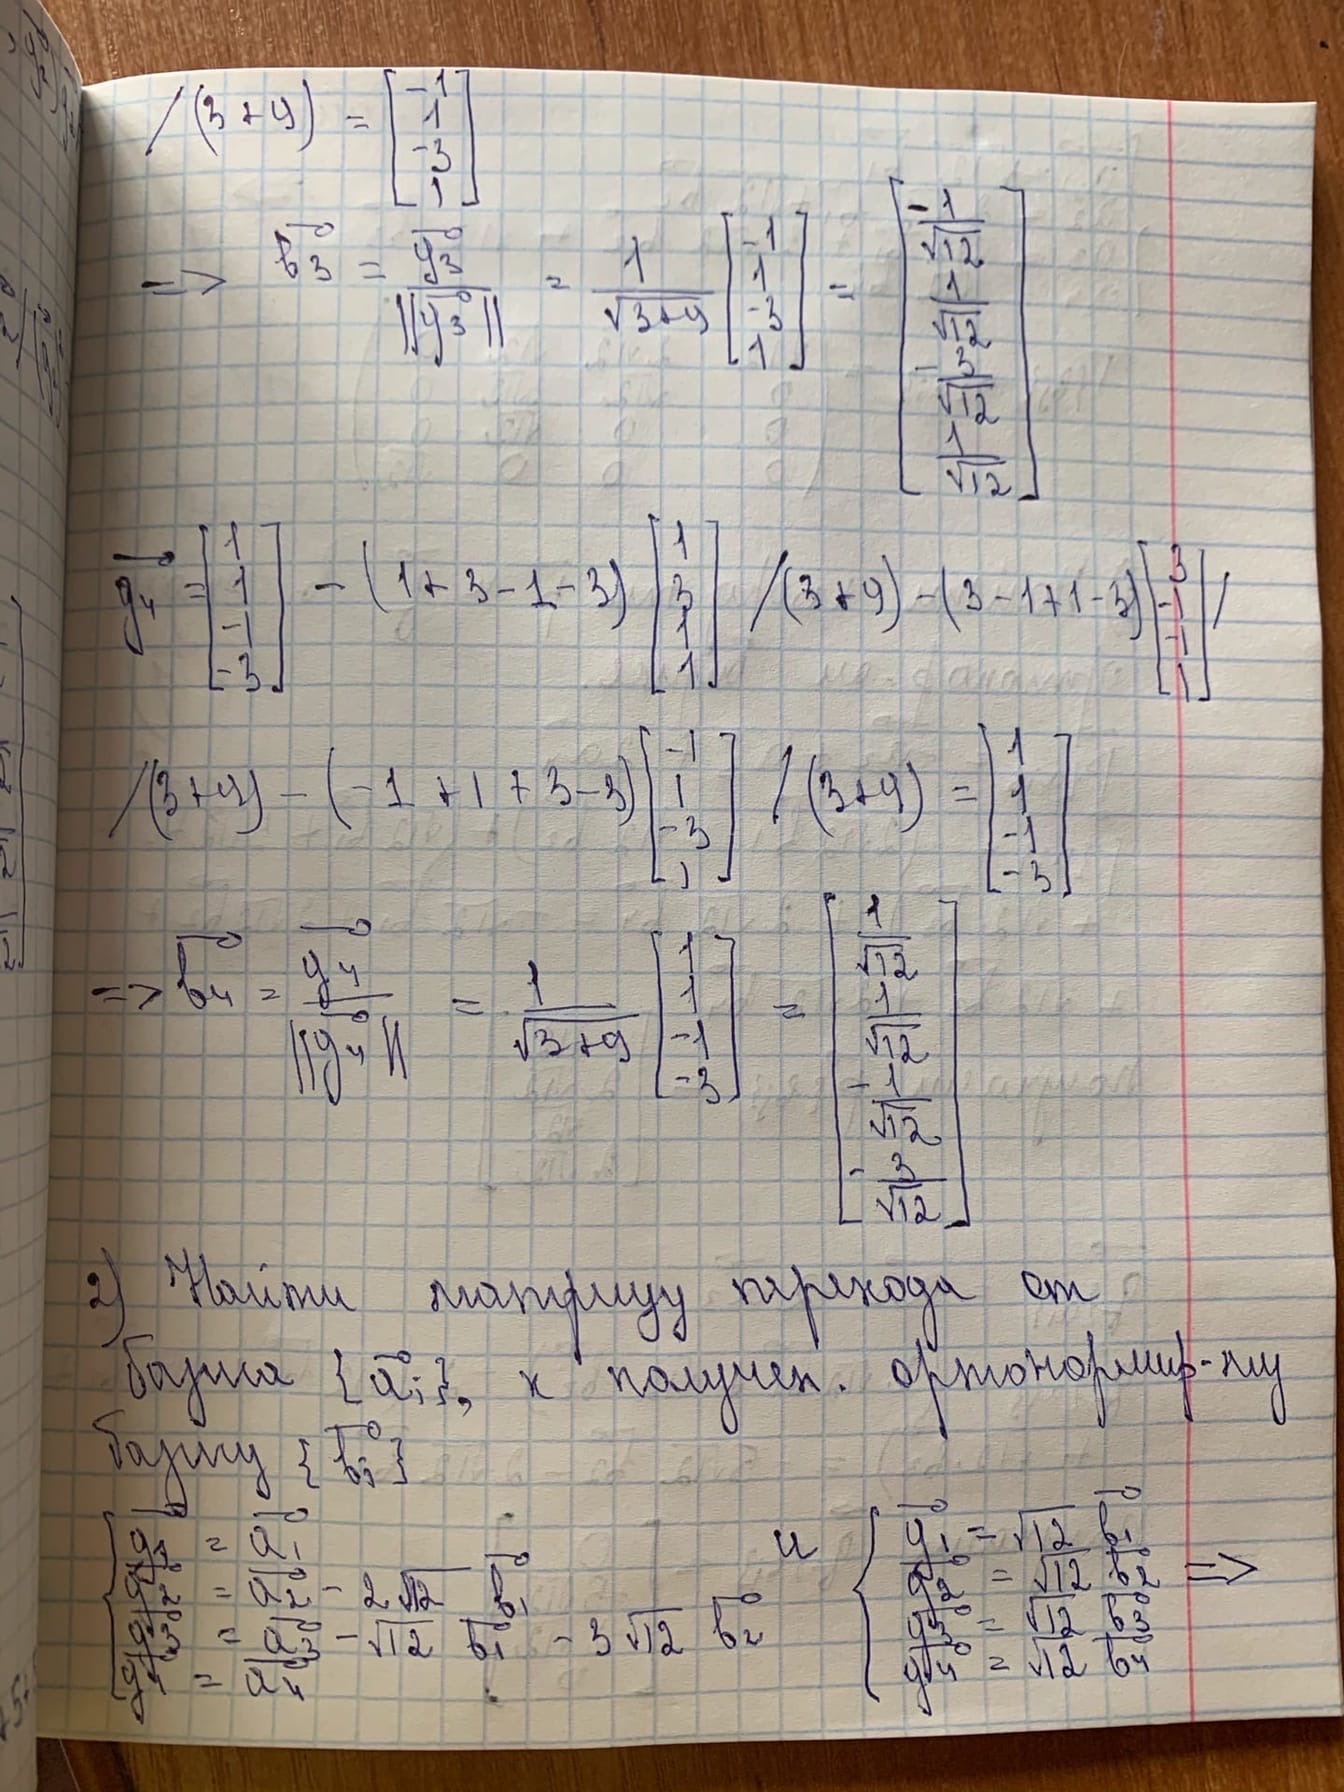 /(3+9) = [-1 1 -3 1]
=> b⃗3 = g⃗3 / ||g⃗3|| = 1/√(3+9) [-1 1 -3 1] = [-1/√12 1/√12 -3/√12 1/√12]
g⃗4 = [1 1 -1 -3] - (1+3-1-3) [1 3 1 1] /(3+9) - (3-1+1-3) [3 -1 -1 1] /
/(3+9) - (-1+1+3-3) [-1 1 -3 1] /(3+9) = [1 1 -1 -3]
=> b⃗4 = g⃗4 / ||g⃗4|| = 1/√(3+9) [1 1 -1 -3] = [1/√12 1/√12 -1/√12 -3/√12]
2) Найти матрицу перехода от
базиса {a⃗i}, к получен. ортонормир-му
базису {b⃗j}
{ g⃗1 = a⃗1 и { g⃗1 = √12 b⃗1
g⃗2 = a⃗2 - 2√12 b⃗1 g⃗2 = √12 b⃗2 =>
g⃗3 = a⃗3 - √12 b⃗1 - 3√12 b⃗2 g⃗3 = √12 b⃗3
g⃗4 = a⃗4 g⃗4 = √12 b⃗4